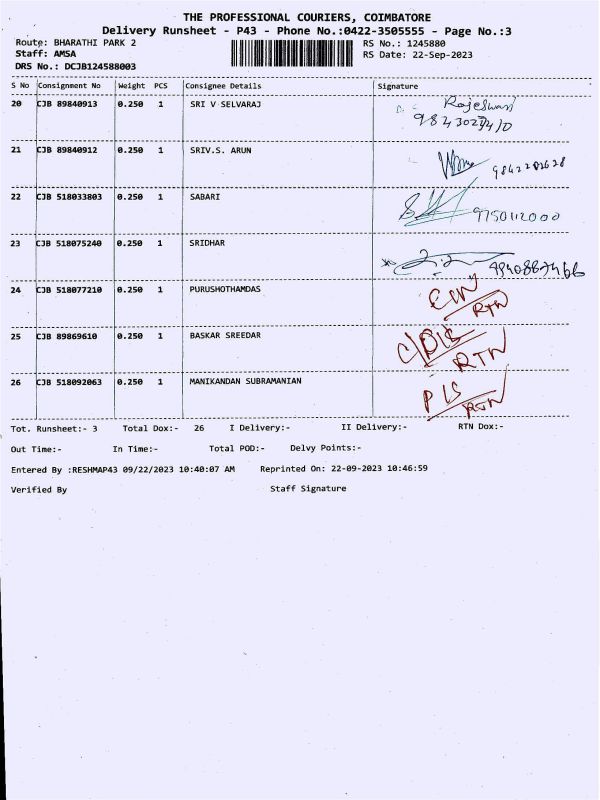 THE PROFESSIONAL COURIERS, COIMBATORE
Delivery Runsheet - P43 - Phone No.:0422-3505555 - Page No.:3
Route: BHARATHI PARK 2 RS No.: 1245880
Staff: AMSA RS Date: 22-Sep-2023
DRS No.: DCJB124588003
S No Consignment No Weight PCS Consignee Details Signature
20 CJB 89840913 0.250 1 SRI V SELVARAJ Rajeswari
21 CJB 89840912 0.250 1 SRIV.S. ARUN
22 CJB 518033803 0.250 1 SABARI 9750112000
23 CJB 518075240 0.250 1 SRIDHAR
24 CJB 518077210 0.250 1 PURUSHOTHAMDAS RTN
25 CJB 89869610 0.250 1 BASKAR SREEDAR RTN
26 CJB 518092063 0.250 1 MANIKANDAN SUBRAMANIAN RTN
Tot. Runsheet:- 3 Total Dox:- 26 I Delivery:- II Delivery:- RTN Dox:-
Out Time:- In Time:- Total POD:- Delvy Points:-
Entered By :RESHMAP43 09/22/2023 10:40:07 AM Reprinted On: 22-09-2023 10:46:59
Verified By Staff Signature